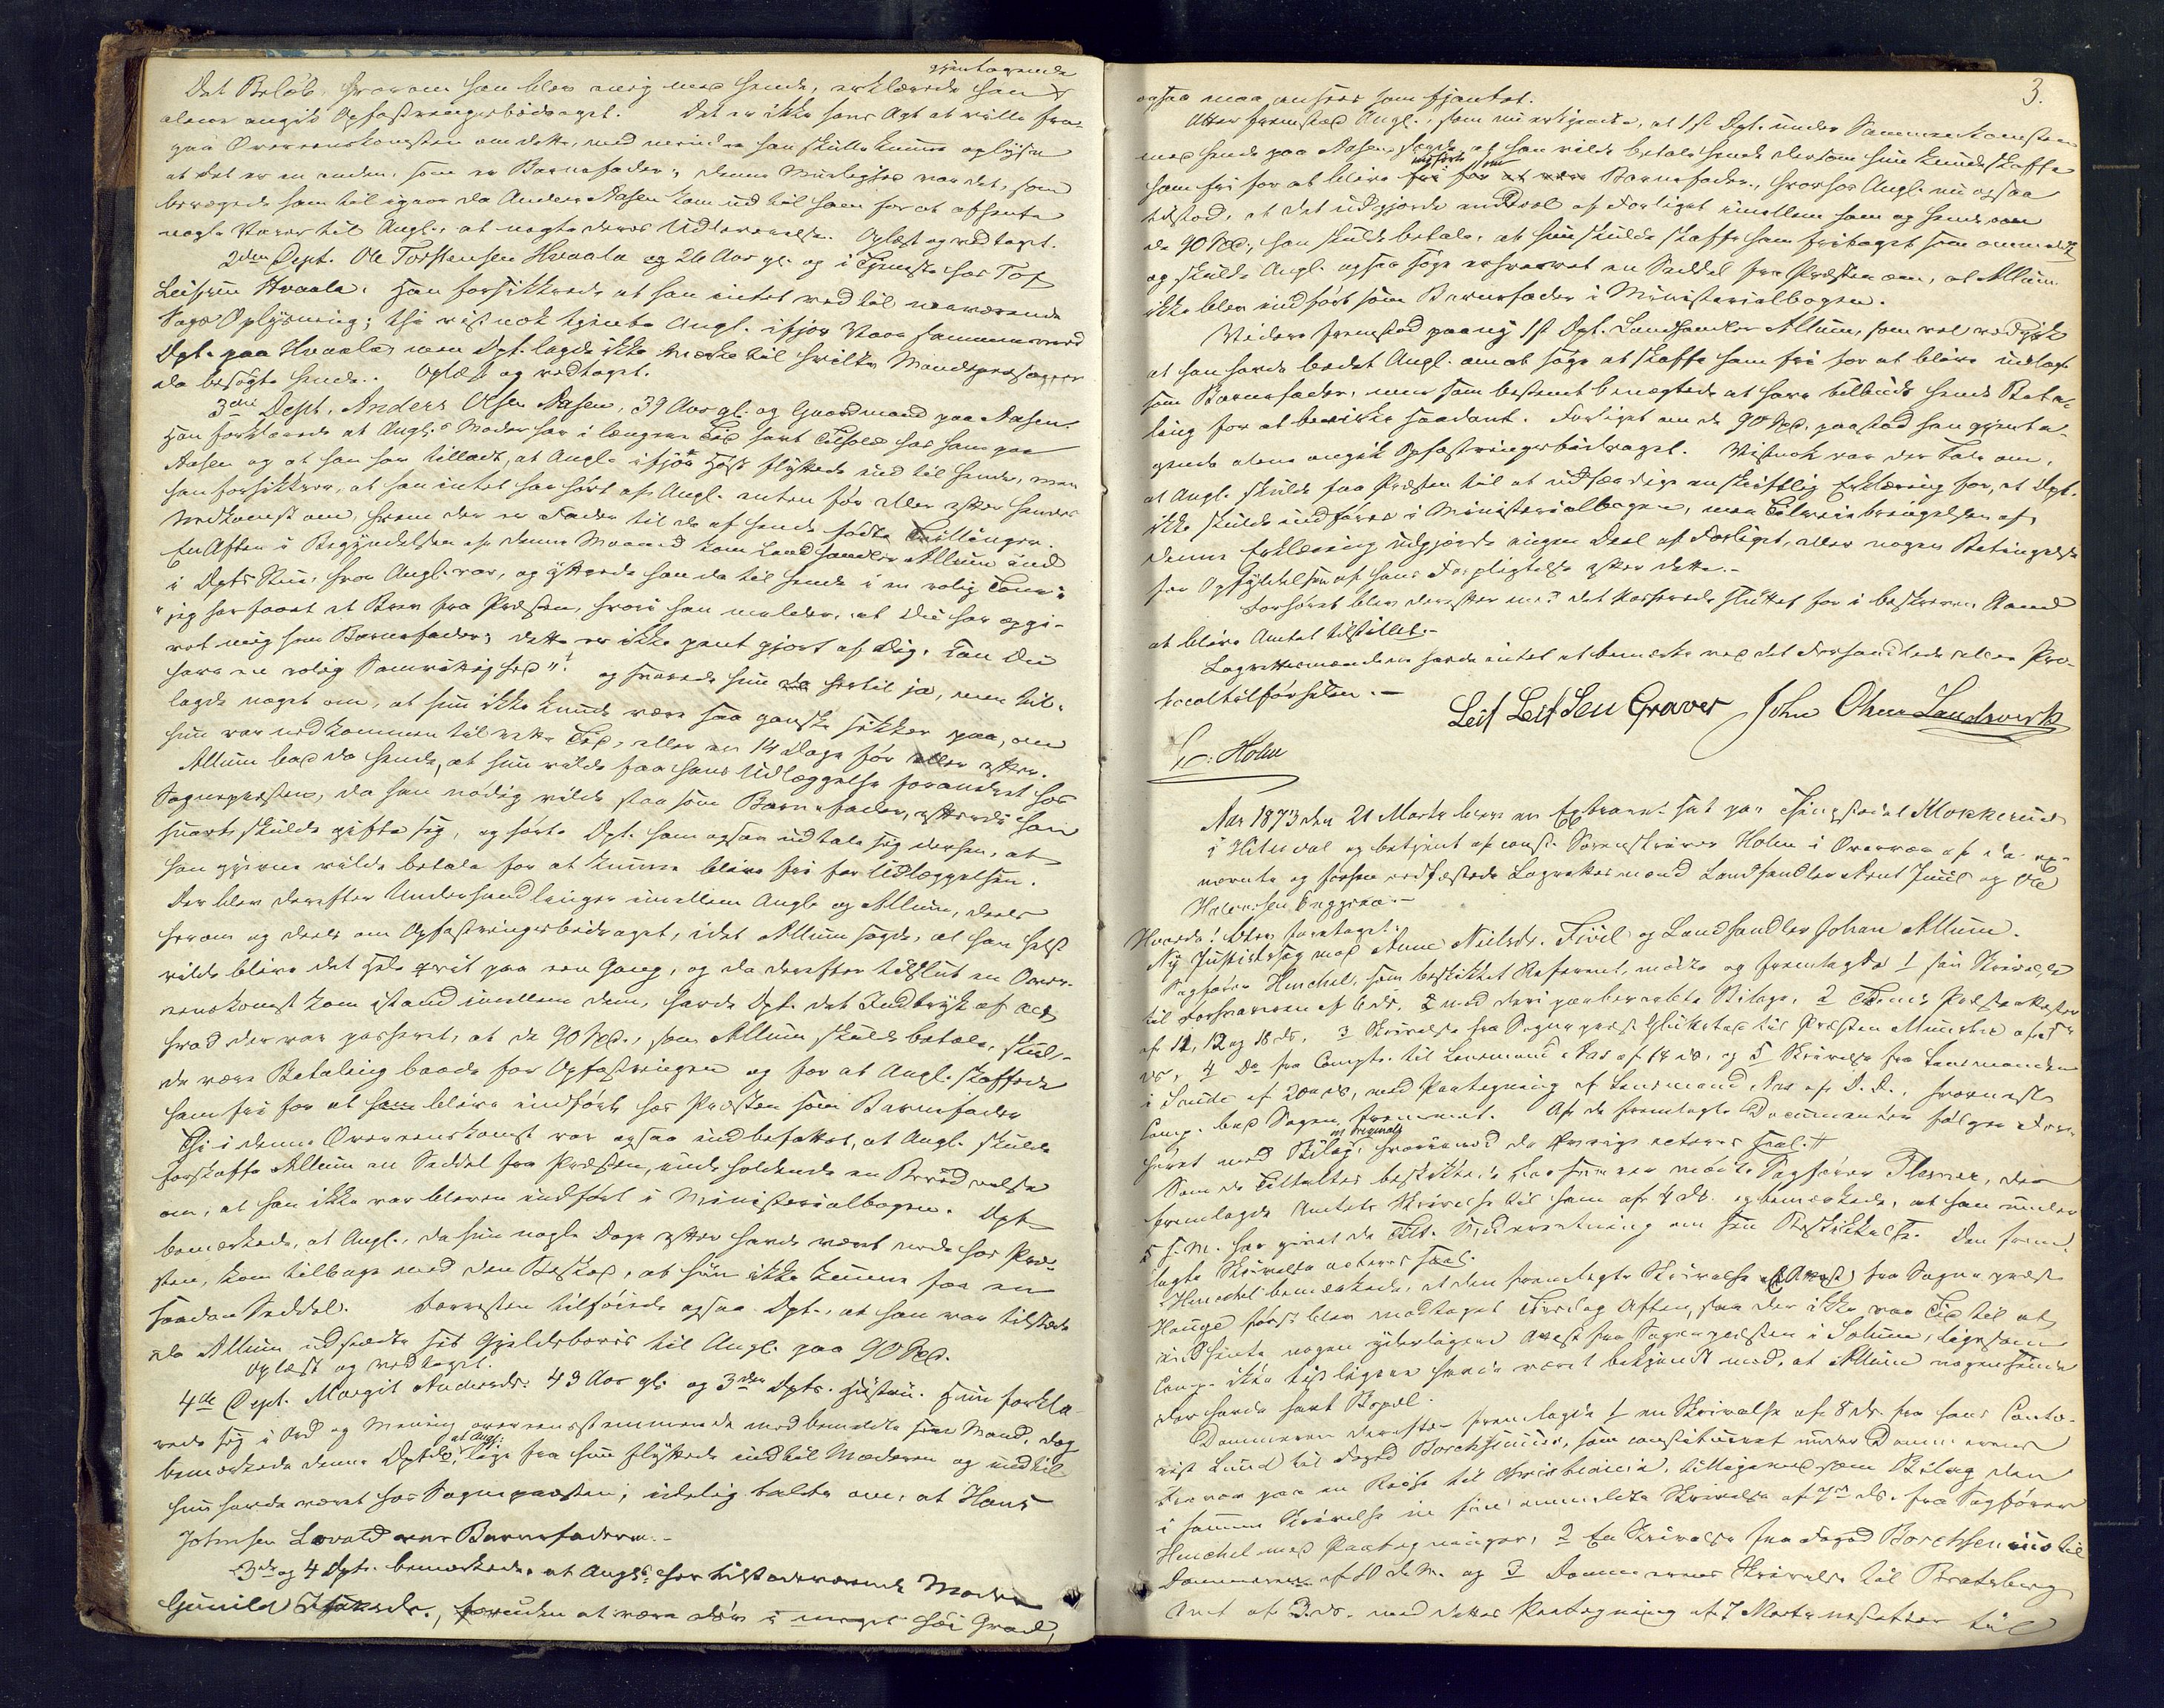 gjentagende
Det Beløb, hvorom han blev enig med hende, erklærede han
alene angik Opfostringsbidraget. Det er ikke hans Agt at ville fra-
gaa Overenskomsten om dette, med mindre han skulde kunne oplyse
at det er en anden, som er Barnefader; denne Mulighed var det, som
bevægede ham til igaar da Anders Aasen kom ud til ham for at afhente
nogle Varer til Angl., at negte deres Udleverelse. Oplæst og vedtaget.
2den Dept. Ole Torstensen Hvaala og 26 Aar gl. og i Tjeneste hos
Leifsen Hvaala. Han forsikkrede at han intet ved til nærværende
Sags Oplysning; thi vistnok tjente Angl. ifjor Vaar sammen med
Dpt. paa Hvaala, men Dpt. lagde ikke Mærke til hvilke Mandspersoner
da besøgte hende. Oplæst og vedtaget.
3die Dept. Anders Olsen Aasen, 39 Aar gl. og Gaardmand paa Aasen.
Han forklarede at Angl.s Moder har i længere Tid havt Tilhold hos ham paa
Aasen og at han har tilladt, at Angl. ifjor Høst flyttede ind til hende, men
han forsikkrer, at han intet har hørt af Angl. enten før eller efter hendes
Nedkomst om, hvem der er Fader til de af hende fødte Tvillinger.
En Aften i Begyndelsen af denne Maaned kom Landhandler Allum ind
i Dpts Stue, hvor Angl. var, og yttrede han da til hende i en rolig Tone:
"jeg har faaet et Brev fra Præsten, hvori han melder, at Du har opgi-
vet mig som Barnefader; dette er ikke pent gjort af Dig. Kan Du
have en rolig Samvittighed"! og svarede hun da hertil ja, men til-
lagde noget om, at hun ikke kunde være saa ganske sikker paa, om
hun var nedkommen til rette Tid, eller en 14 Dage før eller efter.
Allum bad da hende, at hun vilde faa hans Udlæggelse forandret hos
Sognepræsten, da han nødig vilde staa som Barnefader, efterdi han
snart skulde gifte sig, og hørte Dpt. ham ogsaa udtale sig derhen, at
han gjerne vilde betale for at kunne blive fri for Udlæggelsen.
Der blev derefter Underhandlinger imellem Angl. og Allum, deels
herom og deels om Opfostringsbidraget, idet Allum sagde, at han helst
vilde blive det Hele qvit paa een Gang, og da derefter tilslut en Over-
eenskomst kom istand imellem dem, havde Dpt. det Indtryk af
hvad der var passeret, at de 90 Spd., som Allum skulde betale, skul-
de være Betaling baade for Opfostringen og for at Angl. skaffede
ham fri for at blive indført hos Præsten som Barnefader
Thi i denne Overeenskomst var ogsaa indbefattet, at Angl. skulde
forskaffe Allum en Seddel fra Præsten, indeholdende en Bevidnelse
om, at han ikke var bleven indført i Ministerialbogen. Dpt.
bemærkede, at Angl., da hun nogle Dage efter havde været nede hos Præ-
sten, kom tilbage med den Besked, at hun ikke kunne faa en
saadan Seddel. Forresten tilføiede ogsaa Dpt., at han var tilstede
da Allum udstedte sit Gjeldsbevis til Angl. paa 90 Spd.
Oplæst og vedtaget.
4de Dept. Margit Andersdr. 43 Aar gl. og 3die Dpts. Hustru. Hun forkla-
rede sig i Ord og Mening overeensstemmende med bemeldte sin Mand, dog
at Angl.
bemærkede denne Dpt., lige fra hun flyttede ind til Moderen og indtil
hun havde været hos Sognepræsten, idelig talte om, at Hans
Johnsen Lovald var Barnefaderen.
3die og 4 Dpt. bemærkede, at Angls. her tilstedeværende Moder
Gunild Isaksdr., foruden at være døv i meget høi Grad,
3.
ogsaa maa ansees som fjantet.
Atter fremstod Angl., som nu erkjendte, at 1ste Dpt. under Sammenkomsten
med hende paa Aasen sagde, at han vilde betale hende dersom hun kunde skaffe
indført som
ham fri for at blive Barnefader, hvorhos Angl. nu ogsaa
tilstod, at det udgjorde en Deel af Forliget imellem ham og hende om
de 90 Spd., han skulde betale, at hun skulde skaffe ham fritaget som ommeldt
og skulde Angl. ogsaa søge erhvervet en Seddel fra Præsten om, at Allum
ikke blev indført som Barnefader i Ministerialbogen.
Videre fremstod paany 1ste Dpt. Landhandler Allum, som vel vedgik
at han havde bedet Angl. om at søge at skaffe ham fri for at blive udlagt
som Barnefader, men som bestemt benegtede at have tilbudt hende Beta-
ling for at bevirke saadant. Forliget om de 90 Spd. paastod han gjenta-
gende alene angik Opfostringsbidraget. Vistnok var der Tale om,
at Angl. skulde faa Præsten til at udfærdige en skriftlig Erklæring for, at Dpt.
ikke skulde indføres i Ministerialbogen, men Tilveiebringelsen af
denne Erklæring udgjorde ingen Deel af Forliget, eller nogen Betingelse
for Opfyldelsen af hans Forpligtelse efter dette.
Forhøret blev derefter med det Passerede sluttet for i beskreven Stand
at blive Amtet tilstillet.
Lagrettesmændene havde intet at bemærke ved det Forhandlede eller Pro-
tocoltilførselen.
Leif Leifsen Graver John Olsen Landsverk
C. Holm
Aar 1873 den 21 Marts blev en Extraret sat paa Thingstedet Klokkerud
i Hitterdal og betjent af const. Sorenskriver Holm i Overvær af de op-
nævnte og forhen edfæstede Lagrettesmænd Landhandler Juul og Ole
Halvorsen
Hvorda! blev foretaget:
Ny Justitssag mod Anne Nielsdr. Tivil og Landhandler Johan Allum.
Sagfører Henchel, som beskikket Referent, mødte og fremlagde 1 sin Skrivelse
til Forsvareren af 6 ds. med deri paaberaabte Bilage, 2
af 11, 12 og 18 ds., 3 Skrivelse fra Sognepræst Glükstad til Præsten Munster af
ds, 4 Do fra Compts. til Lensmand Aas af 14 ds. og 5 Skrivelse fra Lensmanden
i Sende af 20de ds, med Paategning af Lensmand Aas af D. D., hvornæst
Comp. bad Sagen fremmet. Af de fremlagte Documenter følger For-
in originali
høret med Bilag, hvorimod de Øvrige acteres saal.
Som de Tiltaltes beskikkede Forsvarer mødte Sagfører Plesner, der
fremlagde Amtets Skrivelse til ham af 4 ds. og bemærkede, at han under
5 f. M. har givet de Tilt. Underretning om sin Beskikkelse. Den frem-
lagte Skrivelse acteres saal.
Henchel bemærkede, at den fremlagte Skrivelse (Attest) fra Sognepræst
Hauge først blev modtaget Tirsdag Aften, saa der ikke var Tid til at
indhente nogen yderligere Attest fra Sognepræsten i Solum, ligesom
Comp. ikke tidligere havde været bekjendt med, at Allum nogensinde
der havde havt Bopæl.
Dommeren derefter fremlagde 1 en Skrivelse af 8 ds. fra hans Conto-
rist Lund til Foged Borchsenius, som constitueret under Dommerens
Fravær paa en Reise til Christiania, tilligemed som Bilag den
i samme Skrivelse ommeldte Skrivelse af ds. fra Sagfører
Henchel med Paategninger, 2 En Skrivelse fra Foged Borchsenius til
Dommeren af 10 d. M. og 3 Dommerens Skrivelse til Bratsberg
Amt af 3 ds. med dettes Paategning af 7 Marts næstefter til